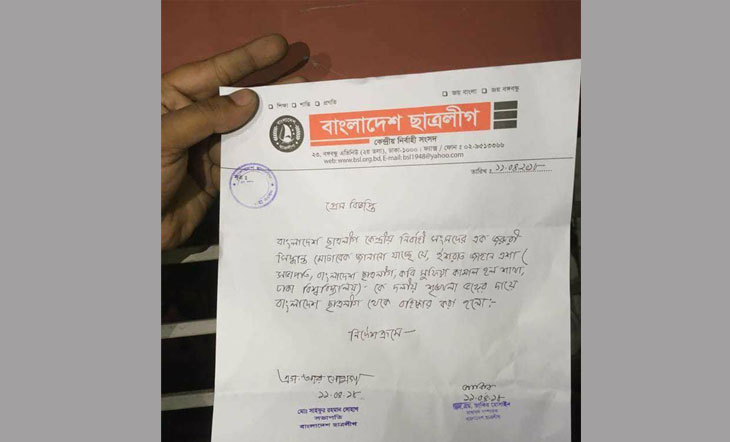 শিক্ষা শান্তি প্রগতি
জয় বাংলা জয় বঙ্গবন্ধু
বাংলাদেশ ছাত্রলীগ
কেন্দ্রীয় নির্বাহী সংসদ
২৩, বঙ্গবন্ধু এভিনিউ (২য় তলা), ঢাকা-১০০০। ফ্যাক্স / ফোন ঃ ০২-৯৫১৩৩৬৬
web:www.bsl.org.bd. E-mail:bsl1948@yahoo.com
তারিখ ঃ ১১.০৪.২০১৮
প্রেস বিজ্ঞপ্তি
বাংলাদেশ ছাত্রলীগ কেন্দ্রীয় নির্বাহী সংসদের এক জরুরী
সিদ্ধান্ত মোতাবেক জানানো যাচ্ছে যে, ইশরাত জাহান এশা (
সভাপতি, বাংলাদেশ ছাত্রলীগ, কবি সুফিয়া কামাল হল শাখা,
ঢাকা বিশ্ববিদ্যালয়)- কে দলীয় শৃঙ্খলা ভঙ্গের দায়ে
বাংলাদেশ ছাত্রলীগ থেকে বহিষ্কার করা হলো:-
নির্দেশক্রমে—
১১.০৪.১৮
মোঃ সাইফুর রহমান সোহাগ
সভাপতি
বাংলাদেশ ছাত্রলীগ
জাকির
১১.০৪.১৮
এস. এম. জাকির হোসাইন
সাধারণ সম্পাদক
বাংলাদেশ ছাত্রলীগ